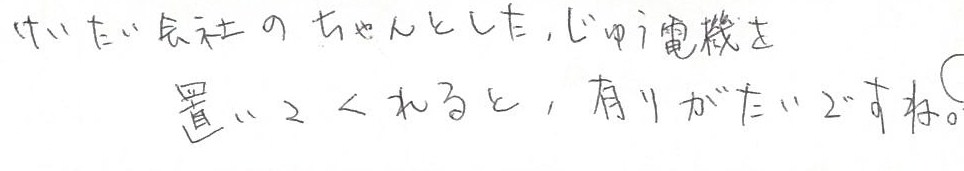 けいたい会社のちゃんとした、じゅう電機を
置いてくれると、有りがたいですね。